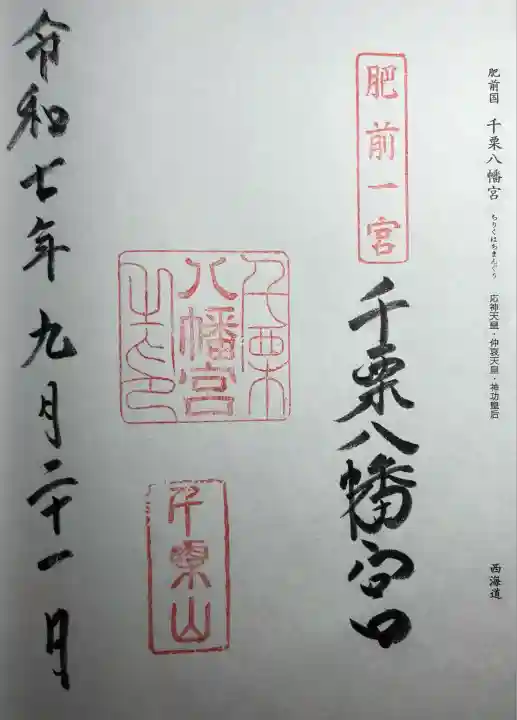 肥前国 千栗八幡宮 ちりくはちまんぐう 応神天皇・仲哀天皇・神功皇后 西海道
肥前一宮
千栗八幡宮
千栗
八幡宮
之印
千栗山
令和七年九月二十一日